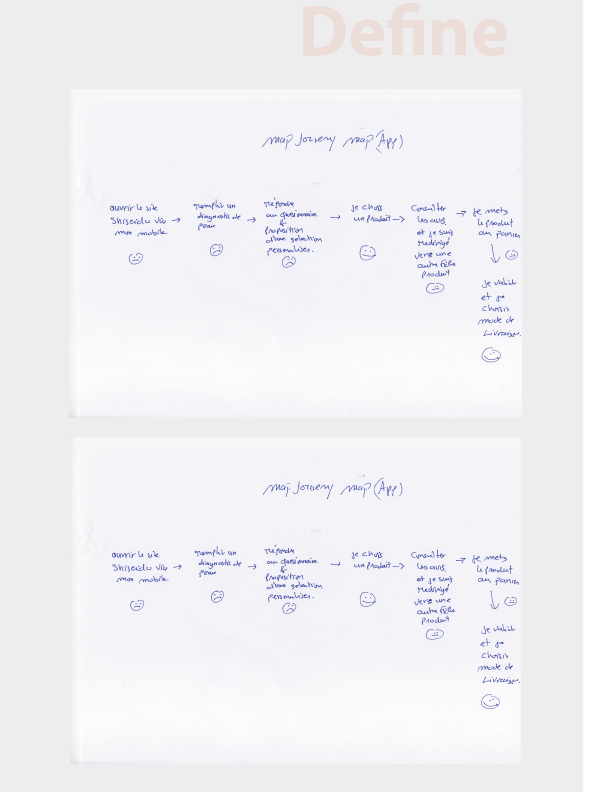 Define
map Jorveny map (App)
ouvrir le site
Shiseido via →
mon mobile
remplir un
diagnostic de →
peau
répondre
au questionnaire →
&
proposition
d'une sélection
personnalisés.
je chois
un produit →
Consulter
les avis
et je suis
redirigé
vers une
autre fiche
produit
→ je mets
le produit
au panier
je valid
et je
choisir
mode de
Livraison.
map Jorveny map (App)
ouvrir le site
Shiseido via →
mon mobile
remplir un
diagnostic de →
peau
répondre
au questionnaire →
&
proposition
d'une sélection
personnalisés.
je chois
un produit →
Consulter
les avis
et je suis
redirigé
vers une
autre fiche
produit
→ je mets
le produit
au panier
je valid
et je
choisir
mode de
Livraison.